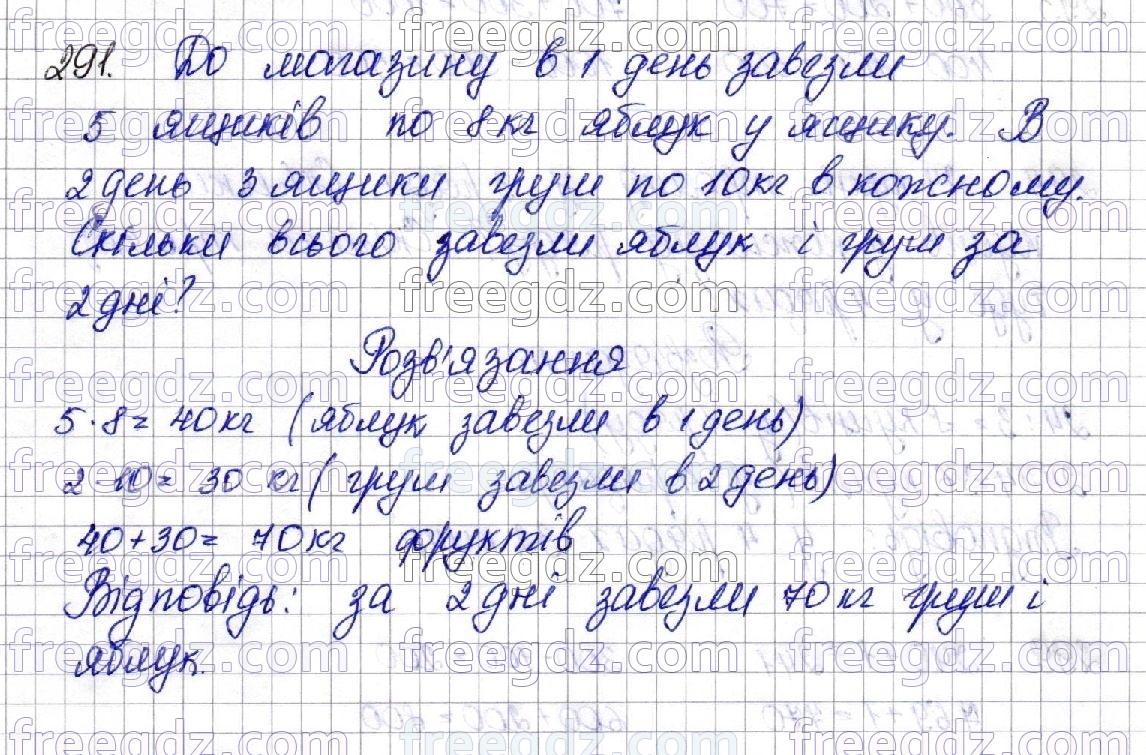 291. До магазину в 1 день завезли
5 ящиків по 8 кг яблук у ящику. В
2 день 3 ящики груш по 10 кг в кожному.
Скільки всього завезли яблук і груш за
2 дні?
Розв'язання
5·8= 40 кг (яблук завезли в 1 день)
2·10= 30 кг (груш завезли в 2 день)
40+30= 70 кг фруктів
Відповідь: за 2 дні завезли 70 кг груш і
яблук.